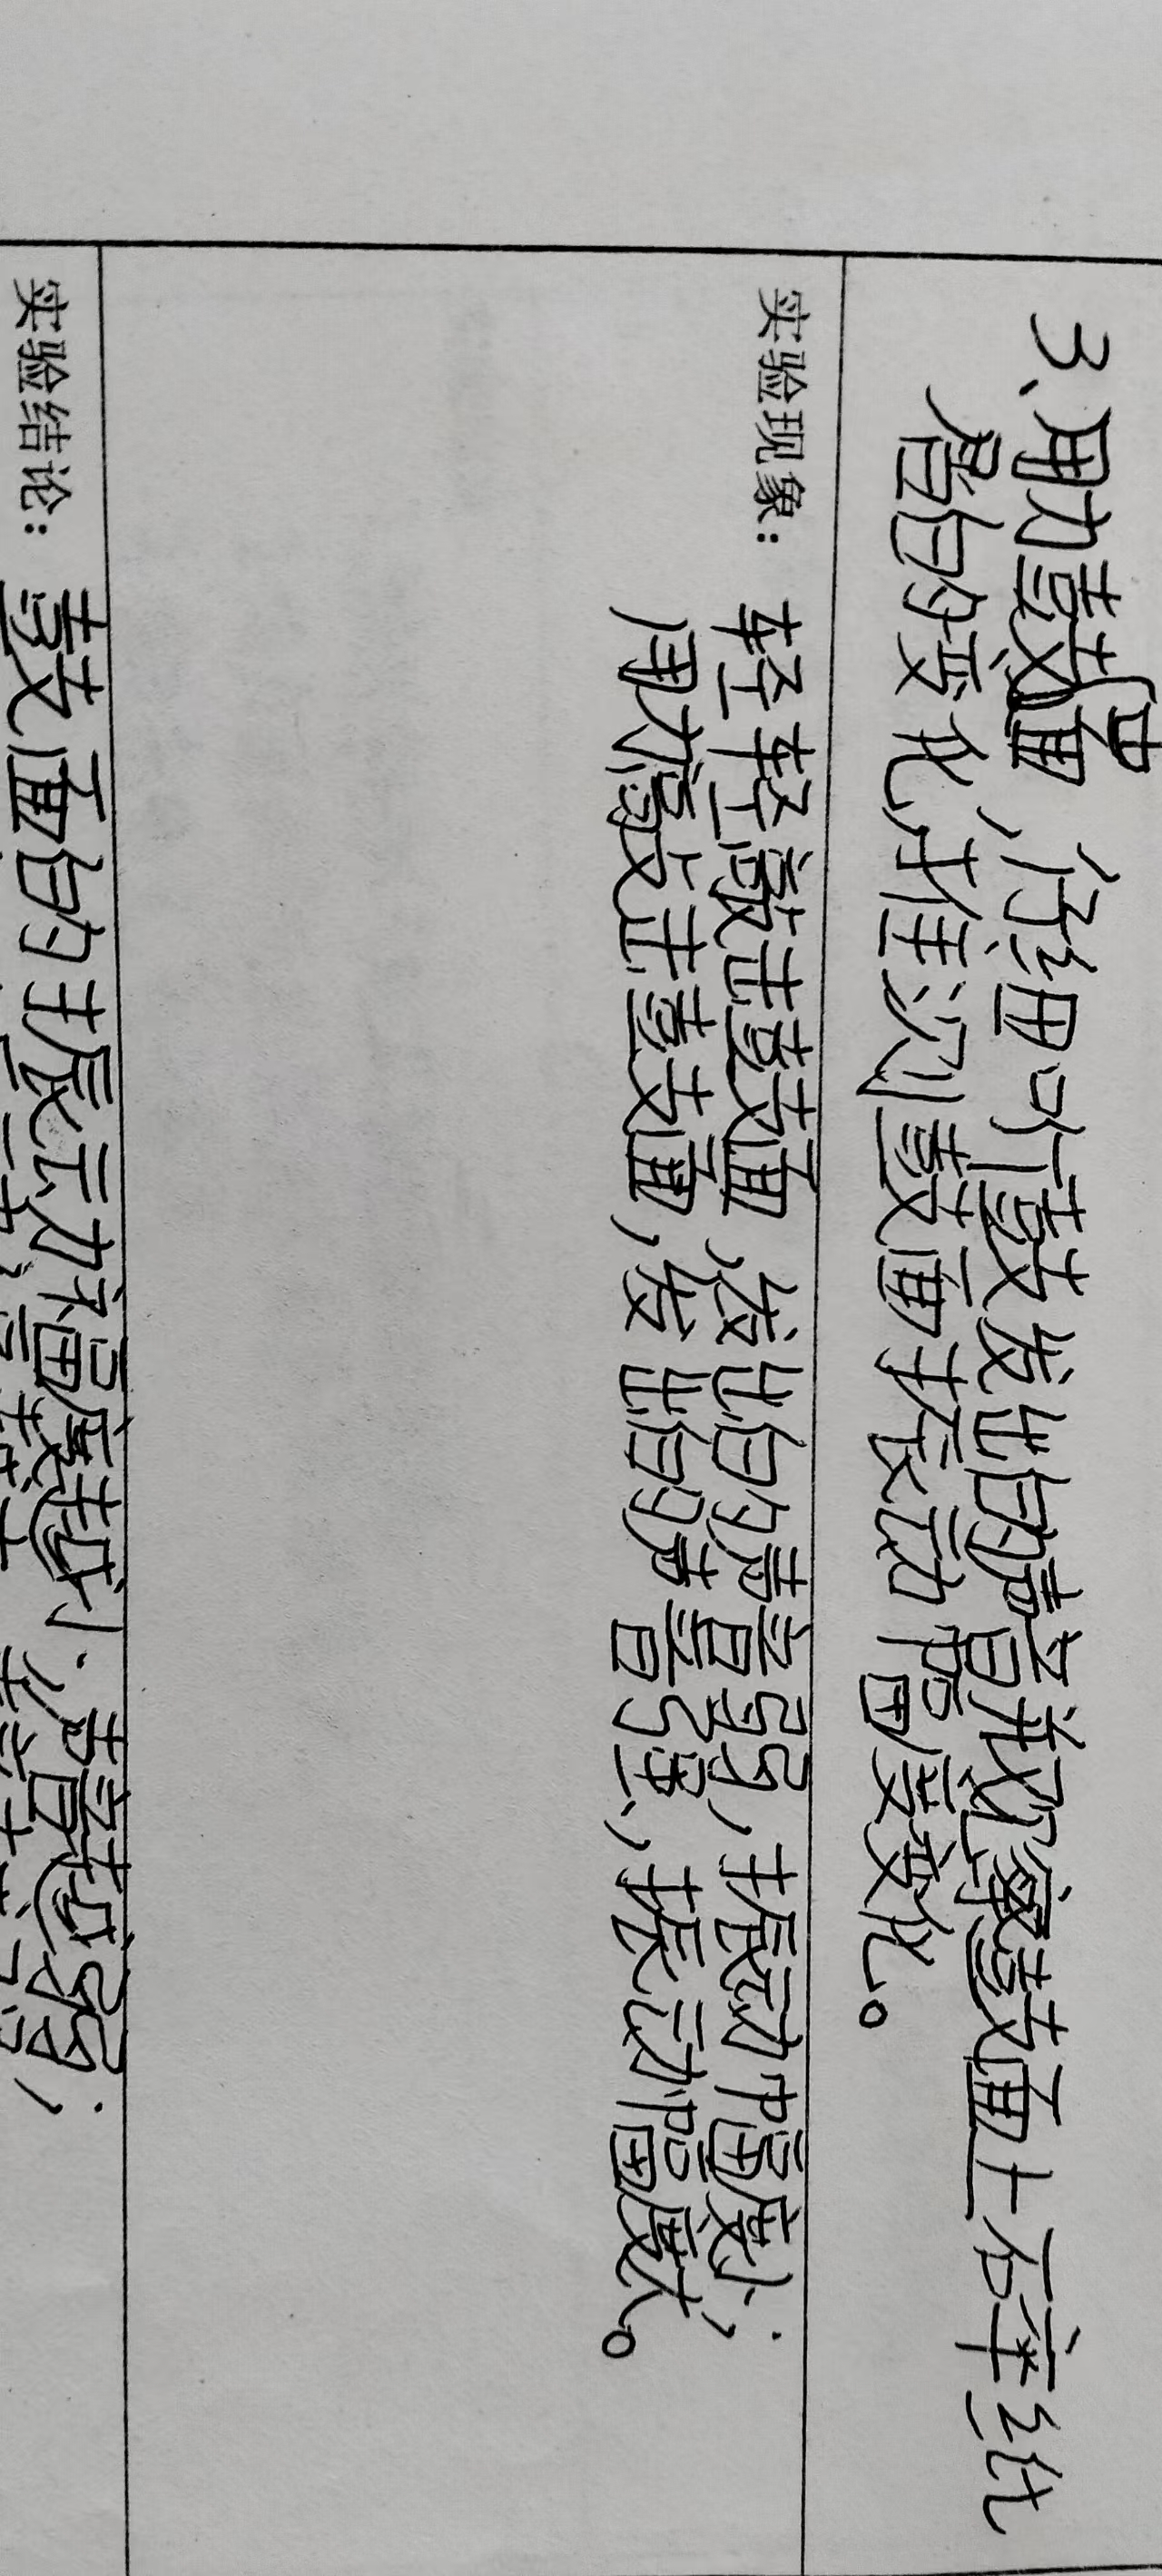 3、用力鼓面,仔细听鼓发出的声音并观察鼓面上碎纸
屑的变化,推测鼓面振动幅度变化。
实验现象: 轻轻敲击鼓面,发出的声音弱,振动幅度小;
用力敲击鼓面,发出的声音强,振动幅度大。
实验结论: 鼓面的振动幅度越小,声音越弱;